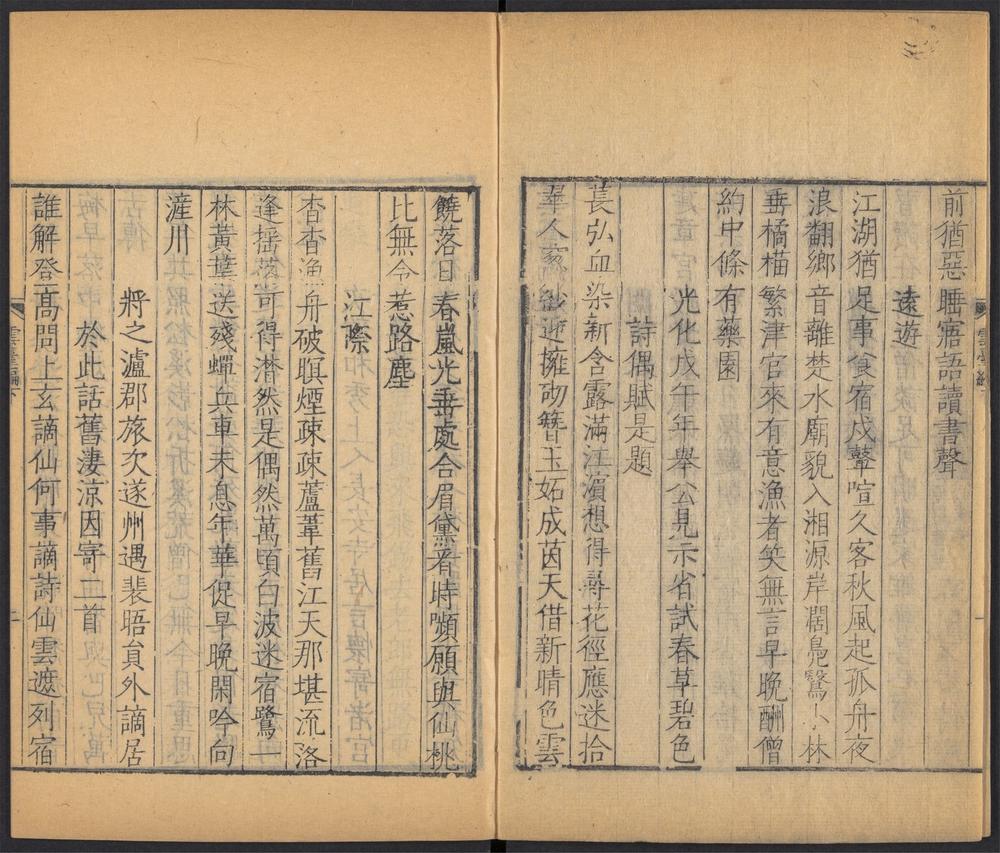 前猶惡睡寤語讀書聲
遠遊
江湖猶足事食宿戍鼙喧久客秋風起孤舟夜
浪翻鄉音離楚水廟貌入湘源岸濶鳧鷖小林
垂橘柚繁津官來有意漁者笑無言早晚酬僧
約中條有藥園
光化戊午年舉公見示省試春草碧色
詩偶賦是題
萇弘血染新含露滿江濵想得尋花徑應迷拾
翠人窓紗迎擁砌簪玉妬成茵天借新晴色雲
饒落日春嵐光垂處合眉黛看時嚬願與仙桃
比無令惹路塵
江際
杳杳漁舟破暝煙疎疎蘆葦舊江天那堪流落
逢揺落可得潸然是偶然萬頃白波迷宿鷺一
林黃葉送殘蟬兵車未息年華促早晚閑吟向
滻川
將之瀘郡旅次遂州遇裴晤貟外謫居
於此話舊淒涼因寄二首
誰解登髙問上玄謫仙何事謫詩仙雲遮列宿